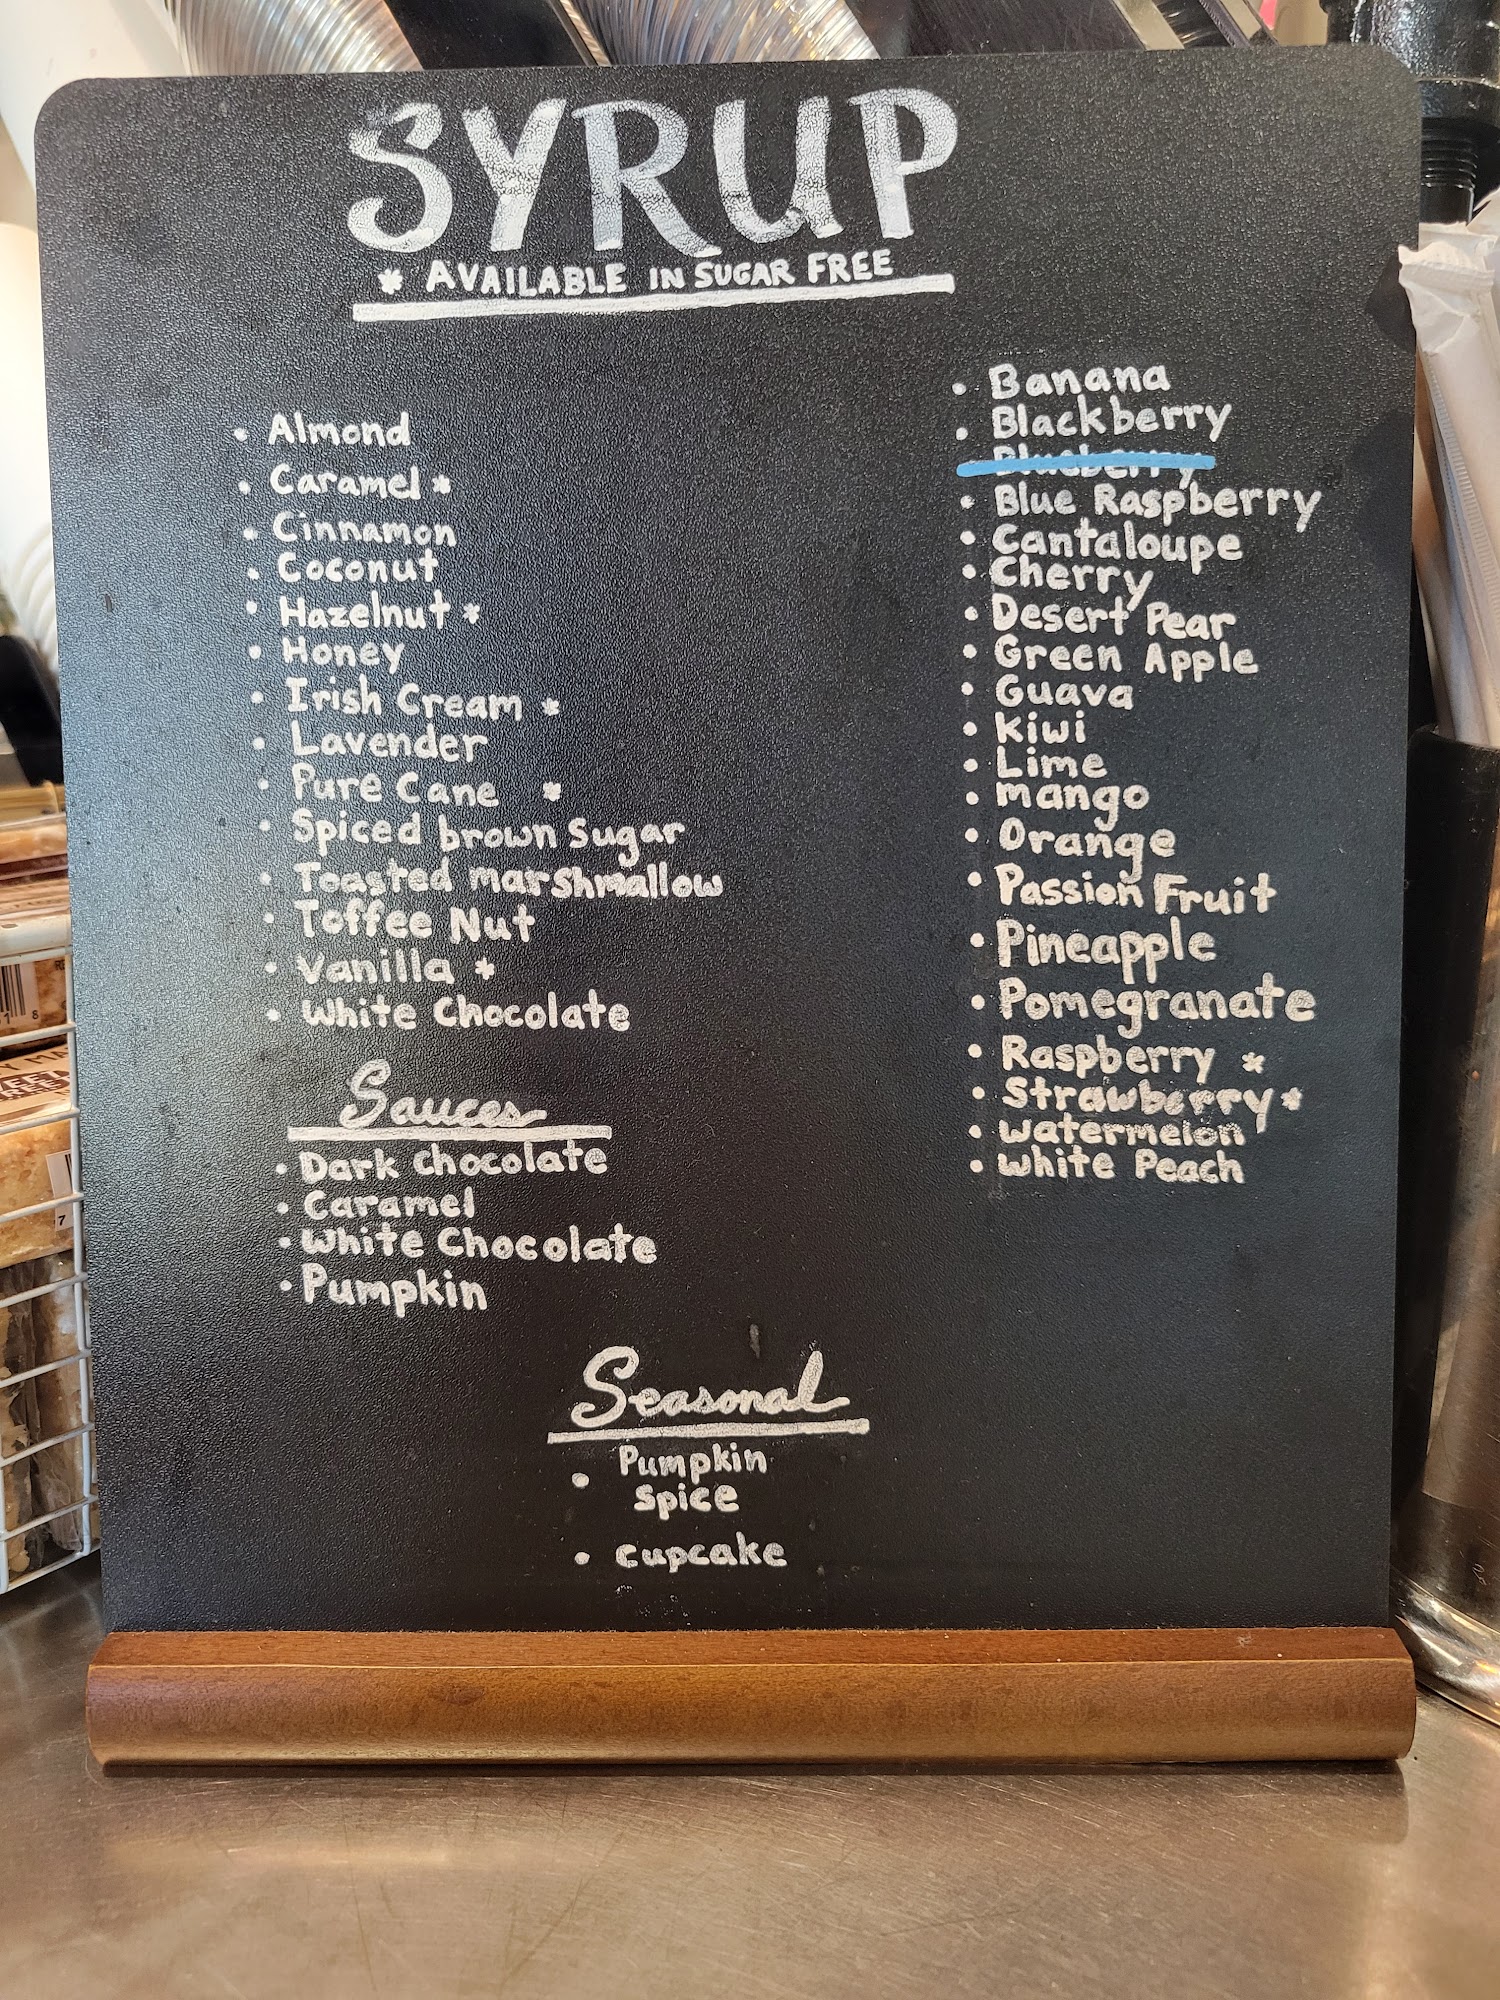 SYRUP
* AVAILABLE IN SUGAR FREE
• Almond
• Caramel *
• Cinnamon
• Coconut
• Hazelnut *
• Honey
• Irish Cream *
• Lavender
• Pure Cane *
• Spiced brown Sugar
• Toasted marshmallow
• Toffee Nut
• Vanilla *
• White Chocolate
Sauces
• Dark Chocolate
• Caramel
• White Chocolate
• Pumpkin
• Banana
• Blackberry
Blueberry
• Blue Raspberry
• Cantaloupe
• Cherry
• Desert Pear
• Green Apple
• Guava
• Kiwi
• Lime
• mango
• Orange
• Passion Fruit
• Pineapple
• Pomegranate
• Raspberry *
• Strawberry *
• watermelon
• white Peach
Seasonal
• Pumpkin
spice
• cupcake